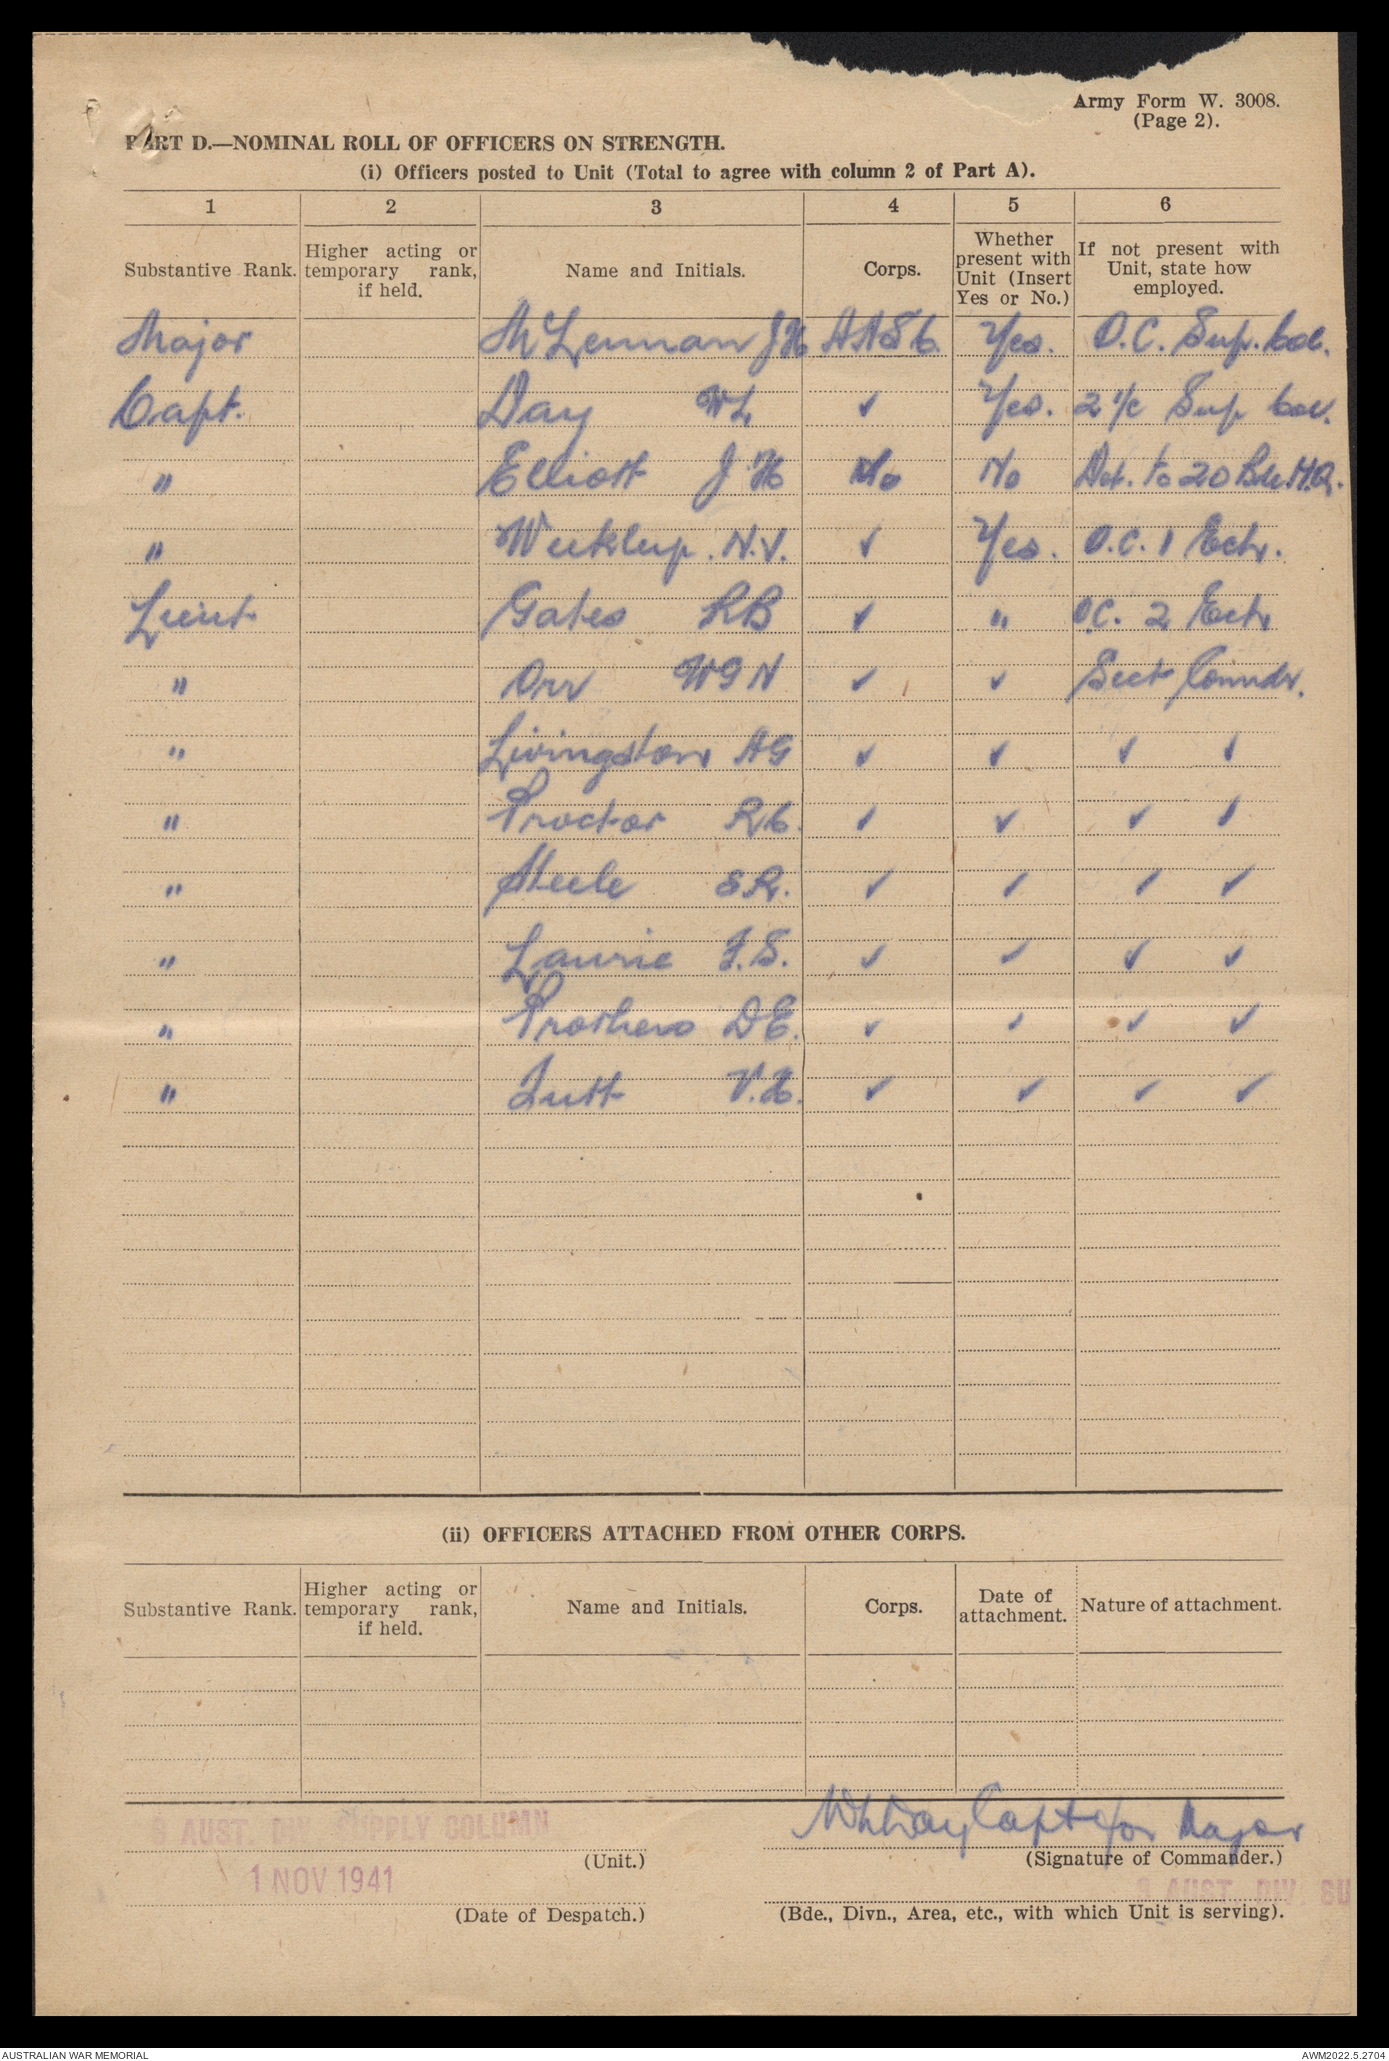 Army Form W. 3008.
(Page 2).
PART D.—NOMINAL ROLL OF OFFICERS ON STRENGTH.
(i) Officers posted to Unit (Total to agree with column 2 of Part A).
1 2 3 4 5 6
Substantive Rank. Higher acting or temporary rank, if held. Name and Initials. Corps. Whether present with Unit (Insert Yes or No.) If not present with Unit, state how employed.
Major McLennan J H AASC Yes. O.C. Sup. Col.
Capt. Day W L ✓ Yes. 2 i/c Sup Col.
" Elliott J H No Det. to 20 Bde H.Q.
" N.V. ✓ Yes. O.C. 1 Ech.
Lieut Gates R B ✓ " O.C. 2 Ech
" Orr W G N ✓ ✓ Sect Commdr.
" Livingston A G ✓ ✓ ✓ ✓
" Proctor R C. ✓ ✓ ✓ ✓
" Steele S R. ✓ ✓ ✓ ✓
" Laurie F. S. ✓ ✓ ✓ ✓
" Prothero D E. ✓ ✓ ✓ ✓
" Tutt V. H. ✓ ✓ ✓ ✓
(ii) OFFICERS ATTACHED FROM OTHER CORPS.
Substantive Rank. Higher acting or temporary rank, if held. Name and Initials. Corps. Date of attachment. Nature of attachment.
AUST. DIV. SUPPLY COLUMN
W L Day Capt for Major
(Unit.) (Signature of Commander.)
1 NOV 1941
AUST. DIV. SU
(Date of Despatch.) (Bde., Divn., Area, etc., with which Unit is serving).
AUSTRALIAN WAR MEMORIAL AWM2022.5.2704